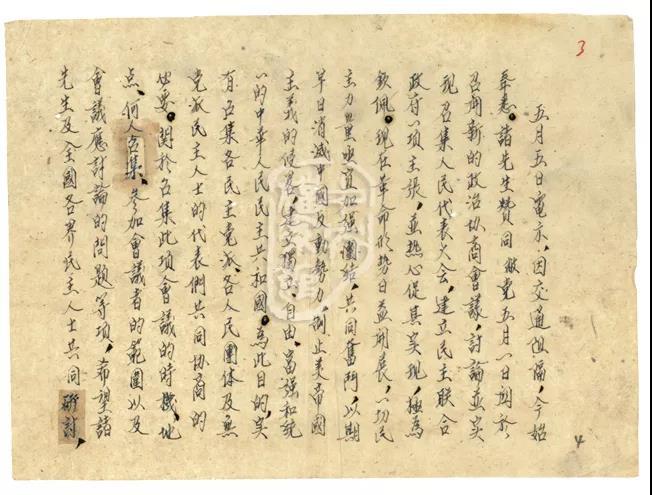 3
五月五日電示,因交通阻隔,今始
奉悉。諸先生贊同敝党五月一日関於
召開新的政治協商會議,討論並实
現召集人民代表大会,建立民主联合
政府一項主張,並热心促其实現,極為
欽佩。現在革命形势日益開展,一切民
主力量亟宜加强團結,共同奮鬥,以期
早日消滅中國反動勢力,制止美帝國
主義的侵略,建立獨立、自由、富强和統
一的中華人民民主共和國。為此目的,实
有召集各民主党派、各人民團体及無
党派民主人士的代表們共同協商的
必要。関於召集此項會議的時機、地
点、何人召集、參加會議者的範圍以及
會議應討論的問題等項,希望諸
先生及全國各界民主人士共同研討,
4